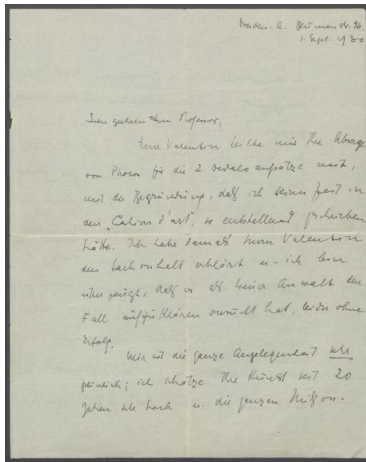 Dresden-A.
1. Sept. 1930
Sehr geehrter Herr Professor,
Herr Valentien teilte mir Ihre Absage
von Photos für die 2 aufsätze mit,
mit der Begründung, daß ich seiner Zeit in
den "Cahiers d'art" so entstellend geschrieben
hätte. Ich habe damals Herrn Valentien
den Sachverhalt erklärt u. ich bin
überzeugt, daß er als Anwalt den
Fall aufzuklären versucht hat, leider ohne
Erfolg.
Mir ist die ganze Angelegenheit sehr
peinlich; ich schätze Ihre Kunst seit 20
Jahren sehr hoch u. die ganzen